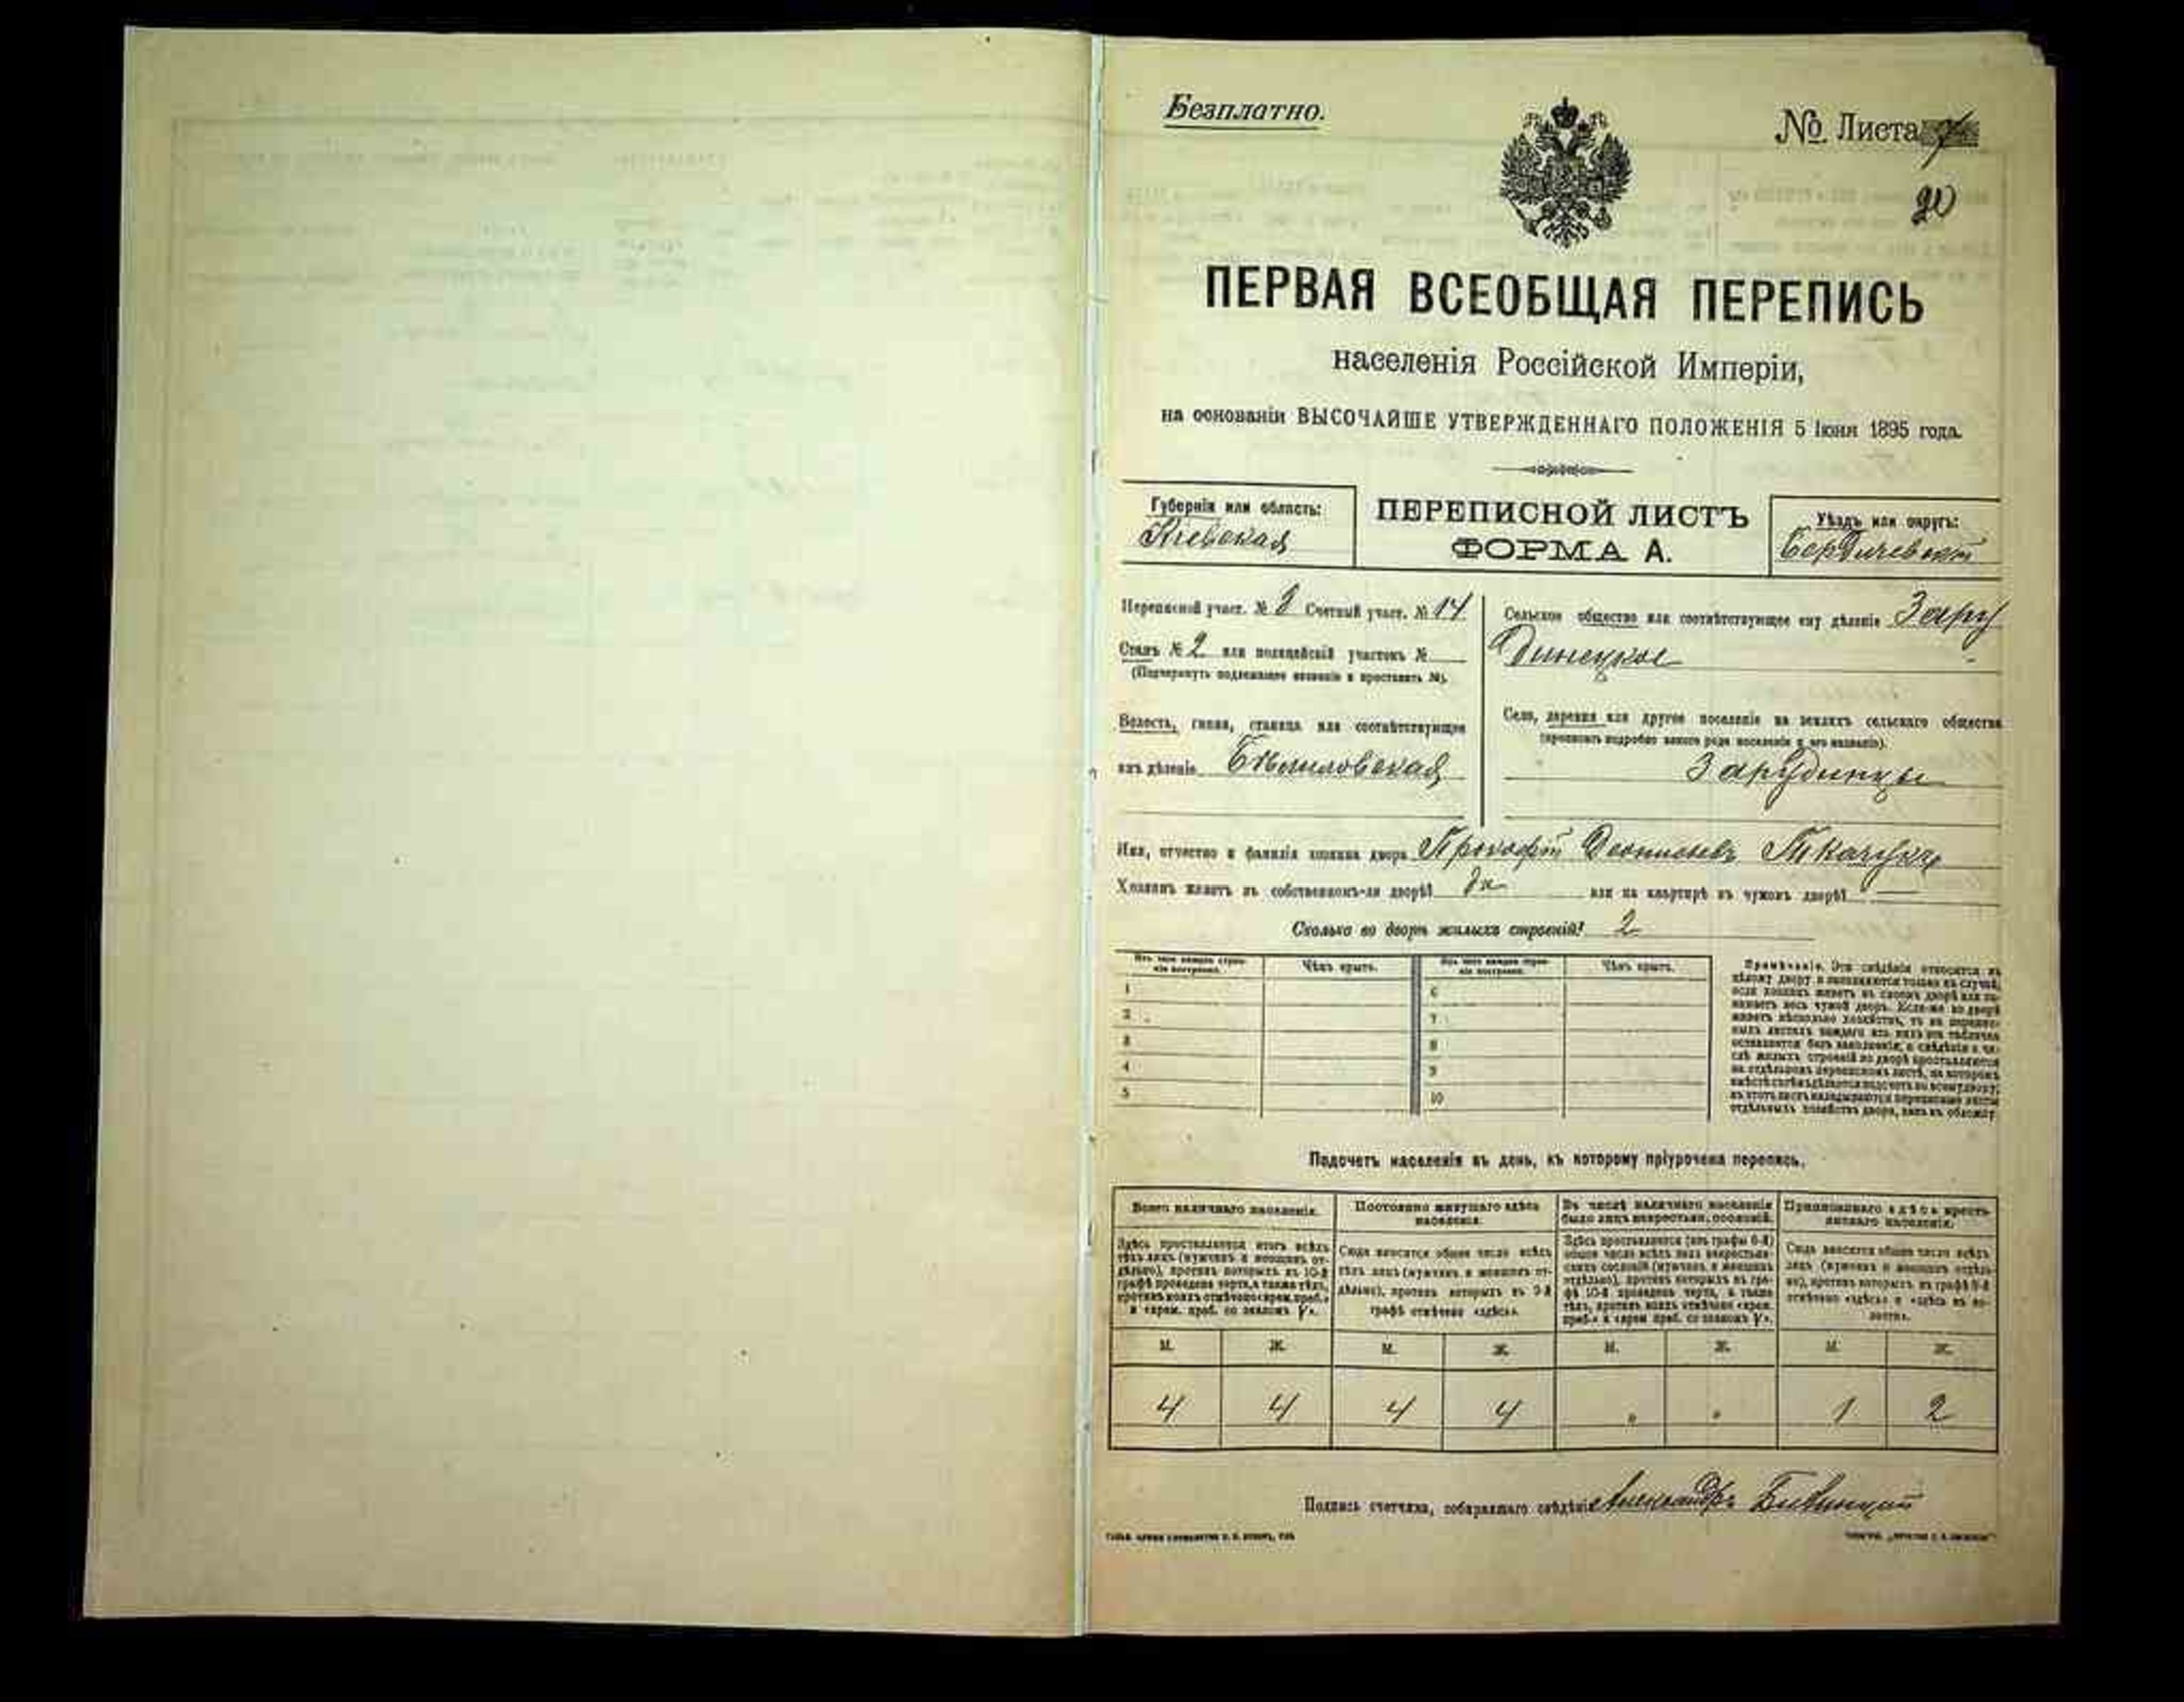 Безплатно.
№ Листа 7
20
ПЕРВАЯ ВСЕОБЩАЯ ПЕРЕПИСЬ
населенія Россійской Имперіи,
на основаніи ВЫСОЧАЙШЕ УТВЕРЖДЕННАГО ПОЛОЖЕНІЯ 5 Іюня 1895 года.
Губернія или область:
Кіевская
ПЕРЕПИСНОЙ ЛИСТЪ
ФОРМА А.
Уѣздъ или округъ:
Бердичевскій
Переписной участ. № Счетный участ. № 14
Станъ № 2 или полицейскій участокъ №
(Подчеркнуть подлежащее названіе и проставить №).
Волость, гмина, станица или соотвѣтствующее
имъ дѣленіе
Сельское общество или соотвѣтствующее ему дѣленіе Зару
динецкое
Село, деревня или другое поселеніе на земляхъ сельскаго общества
(прописать подробно какого рода поселеніе и его названіе).
Зарудинцы
Имя, отчество и фамилія хозяина двора Прокофій Деонисьевъ Ткачукъ
Хозяинъ живетъ въ собственномъ-ли дворѣ? да или на квартирѣ въ чужомъ дворѣ? —
Сколько во дворѣ жилыхъ строеній? 2
Изъ чего каждое строе-
ніе построено.
Чѣмъ крыто.
Изъ чего каждое строе-
ніе построено.
Чѣмъ крыто.
1
2
3
4
5
6
7
8
9
10
Примѣчаніе. Эти свѣдѣнія относятся къ
цѣлому двору и заполняются только въ случаѣ,
если хозяинъ живетъ въ своемъ дворѣ или за-
нимаетъ весь чужой дворъ. Если-же во дворѣ
живетъ нѣсколько хозяйствъ, то на перепис-
ныхъ листахъ каждаго изъ нихъ эта табличка
оставляется безъ заполненія, а свѣдѣнія о чи-
слѣ жилыхъ строеній во дворѣ проставляются
на отдѣльномъ переписномъ листѣ, на которомъ
вмѣстѣ съ тѣмъ дѣлается подсчетъ по всему двору;
въ этотъ листъ вкладываются переписные листы
отдѣльныхъ хозяйствъ двора, какъ въ обложку.
Подсчетъ населенія въ день, къ которому пріурочена перепись.
Всего наличнаго населенія.
Постоянно живущаго здѣсь
населенія.
Въ числѣ наличнаго населенія
было лицъ некрестьян. сословій.
Приписаннаго здѣсь кресть-
янскаго населенія.
Здѣсь проставляется итогъ всѣхъ
тѣхъ лицъ (мужчинъ и женщинъ от-
дѣльно), противъ которыхъ въ 10-й
графѣ проведена черта, а также тѣхъ,
противъ коихъ отмѣчено «врем. преб.»
и «врем. преб. со знакомъ V».
Сюда вносится общее число всѣхъ
тѣхъ лицъ (мужчинъ и женщинъ от-
дѣльно), противъ которыхъ въ 9-й
графѣ отмѣчено «здѣсь».
Здѣсь проставляется (изъ графы 6-й)
общее число всѣхъ лицъ некрестьян-
скихъ сословій (мужчинъ и женщинъ
отдѣльно), противъ которыхъ въ гра-
фѣ 10-й проведена черта, а также
тѣхъ, противъ коихъ отмѣчено «врем.
преб.» и «врем. преб. со знакомъ V».
Сюда вносится общее число всѣхъ
лицъ (мужчинъ и женщинъ отдѣль-
но), противъ которыхъ въ графѣ 8-й
отмѣчено «здѣсь» и «здѣсь въ во-
лости».
М. Ж. М. Ж. М. Ж. М. Ж.
4 4 4 4 " " 1 2
Подпись счетчика, собиравшаго свѣдѣнія Александръ